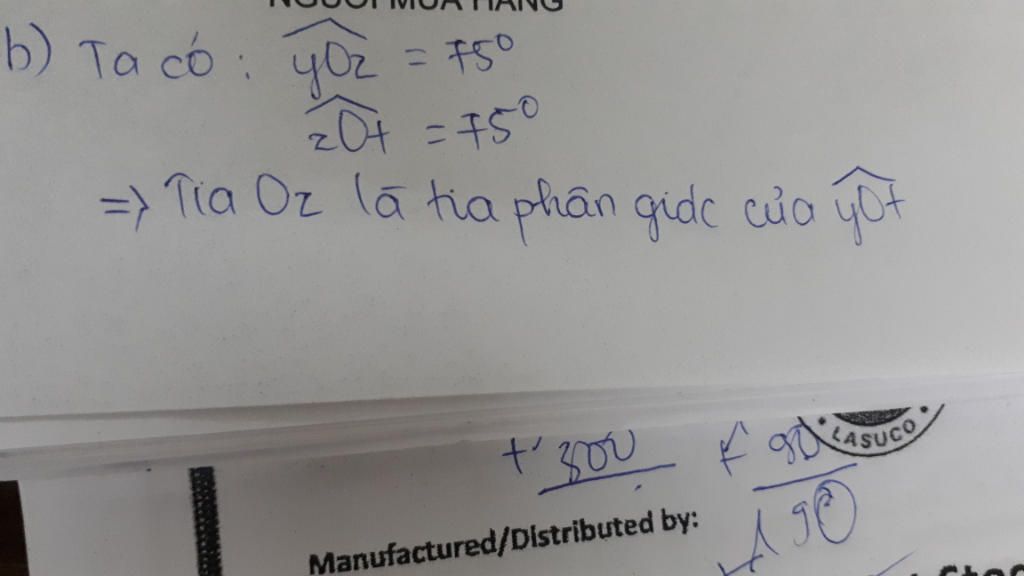 NGƯỜI MUA HÀNG
b) Ta có : yOz = 75⁰
zOt = 75⁰
=> Tia Oz là tia phân giác của yOt
+ 300
+ 90
LASUCO
190
Manufactured/Distributed by: